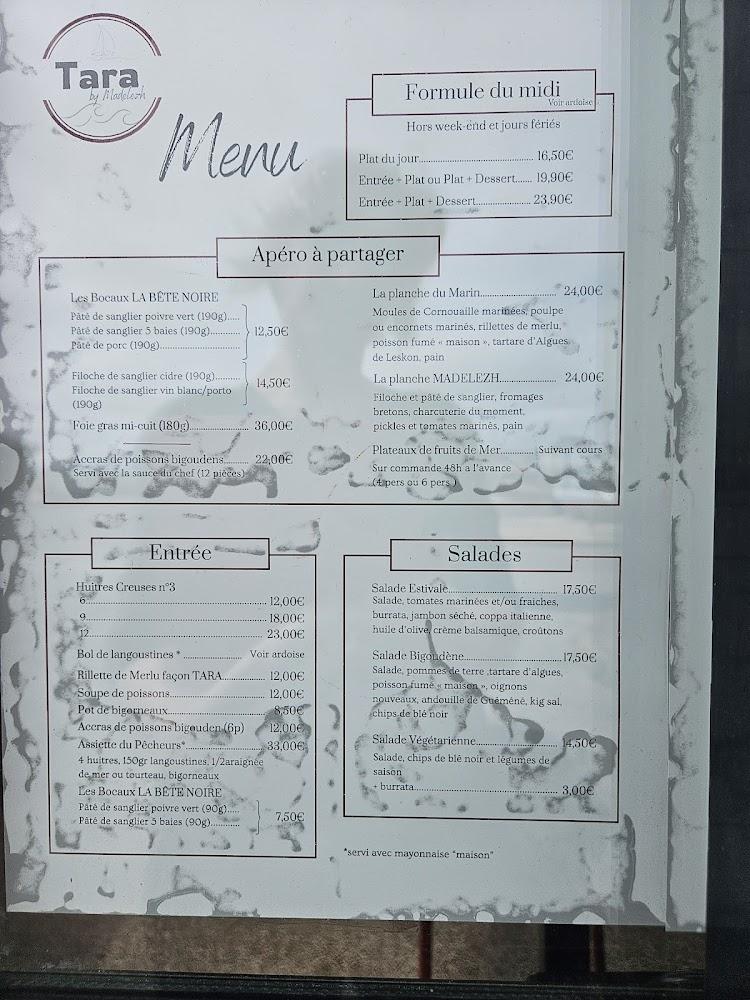 Tara
by Madelezh
Menu
Formule du midi
Voir ardoise
Hors week-end et jours fériés
Plat du jour.............................. 16,50€
Entrée + Plat ou Plat + Dessert...... 19,90€
Entrée + Plat + Dessert...................... 23,90€
Apéro à partager
Les Bocaux LA BÊTE NOIRE
Pâté de sanglier poivre vert (190g).....
Pâté de sanglier 5 baies (190g)............ 12,50€
Pâte de porc (190g)..............................
Filoche de sanglier cidre (190g)......... 14,50€
Filoche de sanglier vin blanc/porto
(190g)
Foie gras mi-cuit (180g)...................... 36,00€
Accras de poissons bigoudens......... 22,00€
Servi avec la sauce du chef (12 pièces)
La planche du Marin........................ 24,00€
Moules de Cornouaille marinées, poulpe
ou encornets marinés, rillettes de merlu,
poisson fumé « maison », tartare d'Algues
de Leskon, pain
La planche MADELEZH..................... 24,00€
Filoche et pâté de sanglier, fromages
bretons, charcuterie du moment,
pickles et tomates marinés, pain
Plateaux de fruits de Mer............ Suivant cours
Sur commande 48h a l'avance
(4 pers ou 6 pers )
Entrée
Huitres Creuses n°3
6................................................................ 12,00€
9................................................................ 18,00€
12.............................................................. 23,00€
Bol de langoustines * ...................... Voir ardoise
Rillette de Merlu façon TARA............. 12,00€
Soupe de poissons................................. 12,00€
Pot de bigorneaux................................. 8,50€
Accras de poissons bigouden (6p) 12,00€
Assiette du Pêcheurs*........................... 33,00€
4 huitres, 150gr langoustines, 1/2araignée
de mer ou tourteau, bigorneaux
Les Bocaux LA BÊTE NOIRE
Pâté de sanglier poivre vert (90g)...... 7,50€
Pâté de sanglier 5 baies (90g)...........
Salades
Salade Estivale.................................. 17,50€
Salade, tomates marinées et/ou fraiches,
burrata, jambon séché, coppa italienne,
huile d'olive, crème balsamique, croûtons
Salade Bigoudène..............................17,50€
Salade, pommes de terre ,tartare d'algues,
poisson fumé « maison », oignons
nouveaux, andouille de Guémené, kig sal,
chips de blé noir
Salade Végétarienne......................... 14,50€
Salade, chips de blé noir et légumes de
saison
+ burrata............................................. 3,00€
*servi avec mayonnaise "maison"